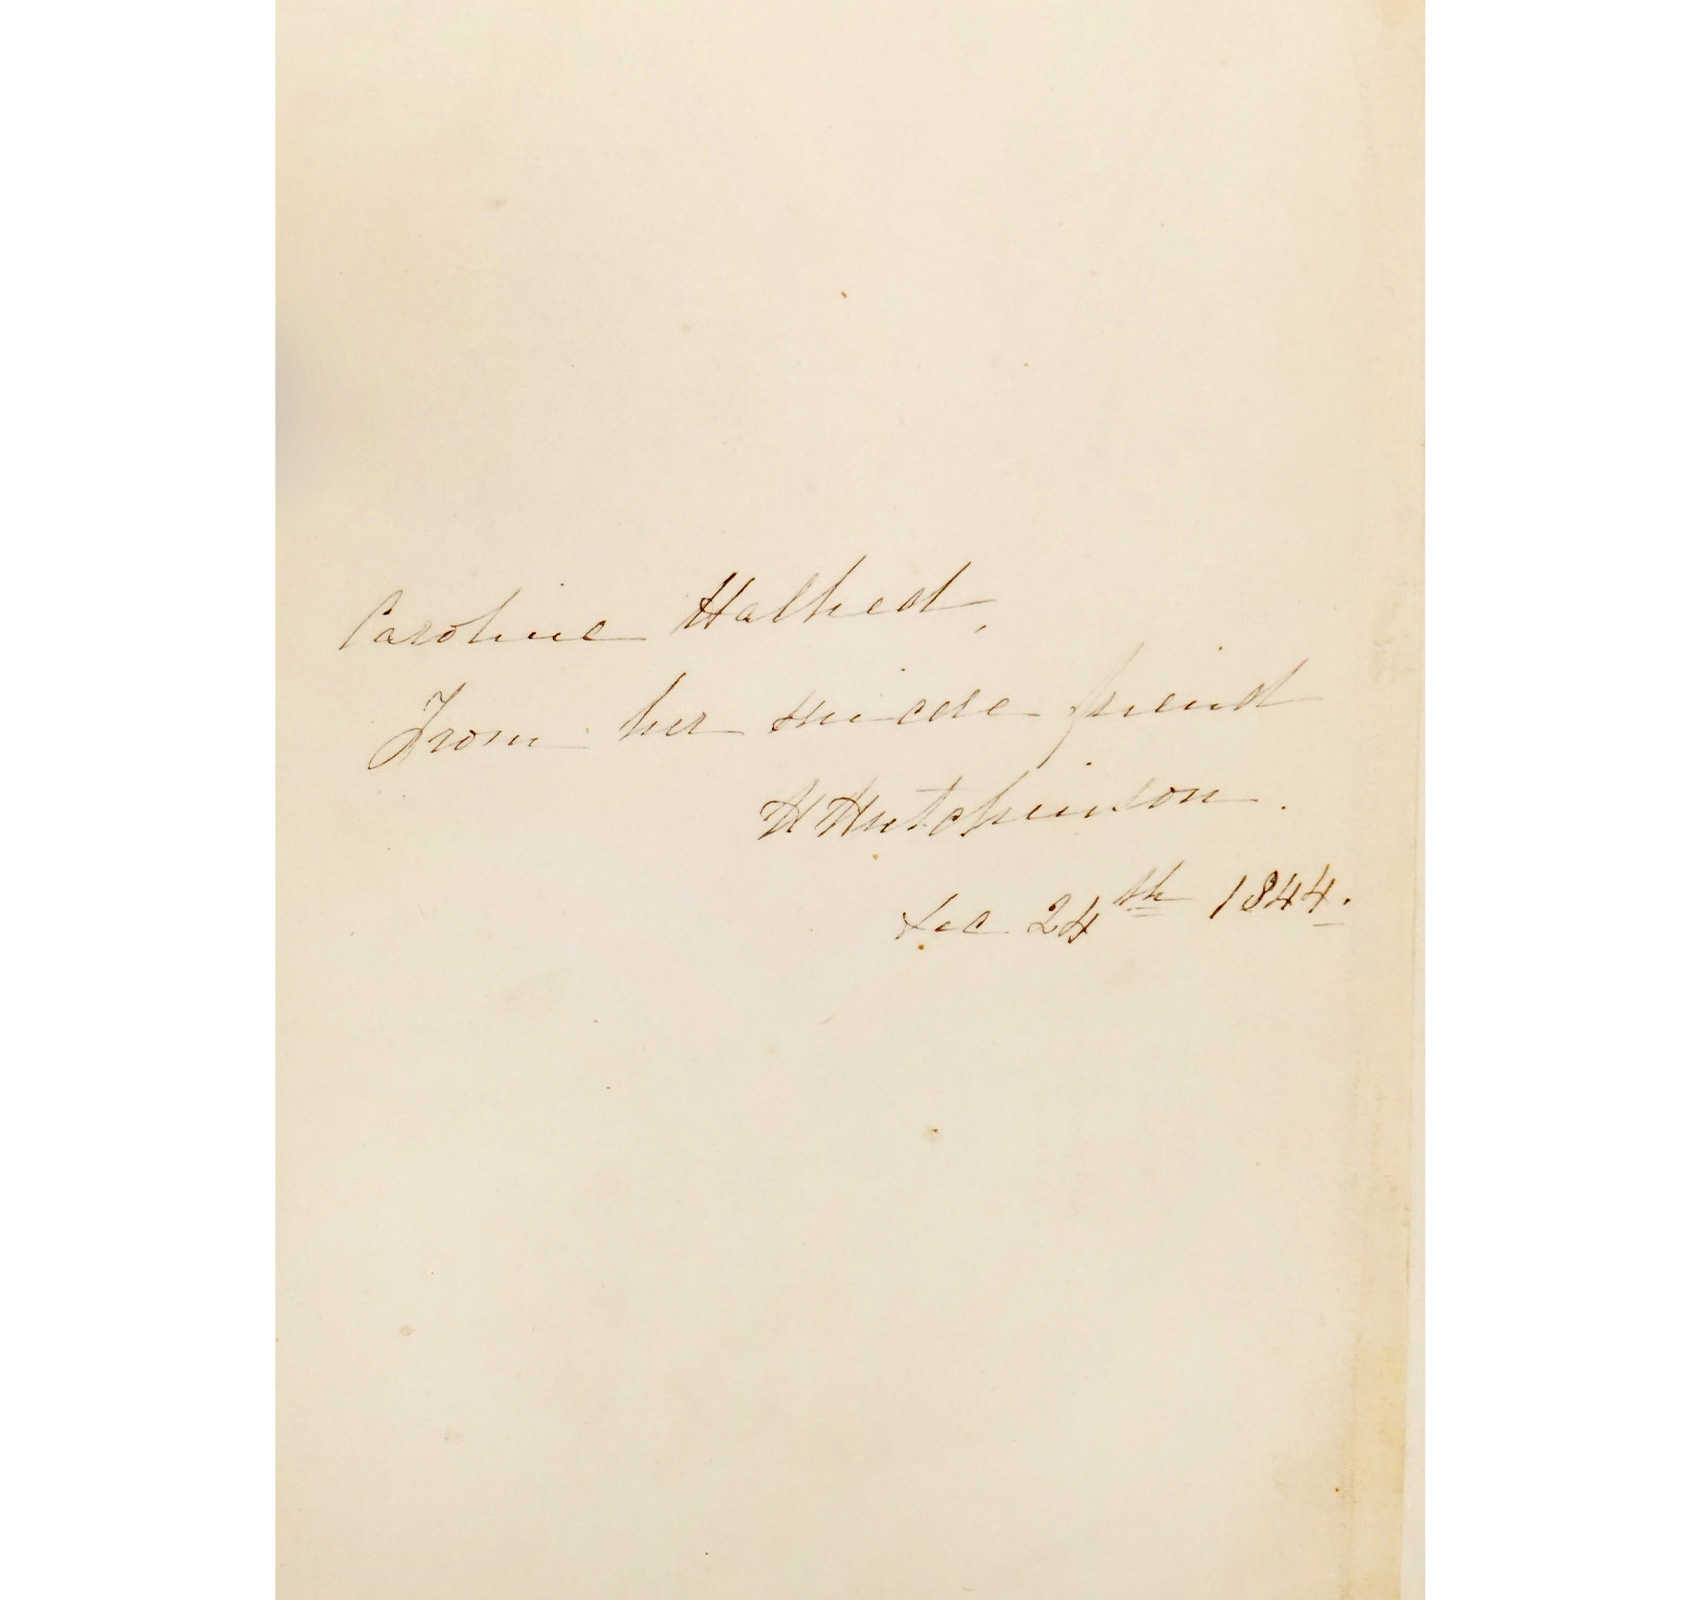 Caroline Halhed,
From her sincere friend
H Hutchinson.
Dec 24th 1844.